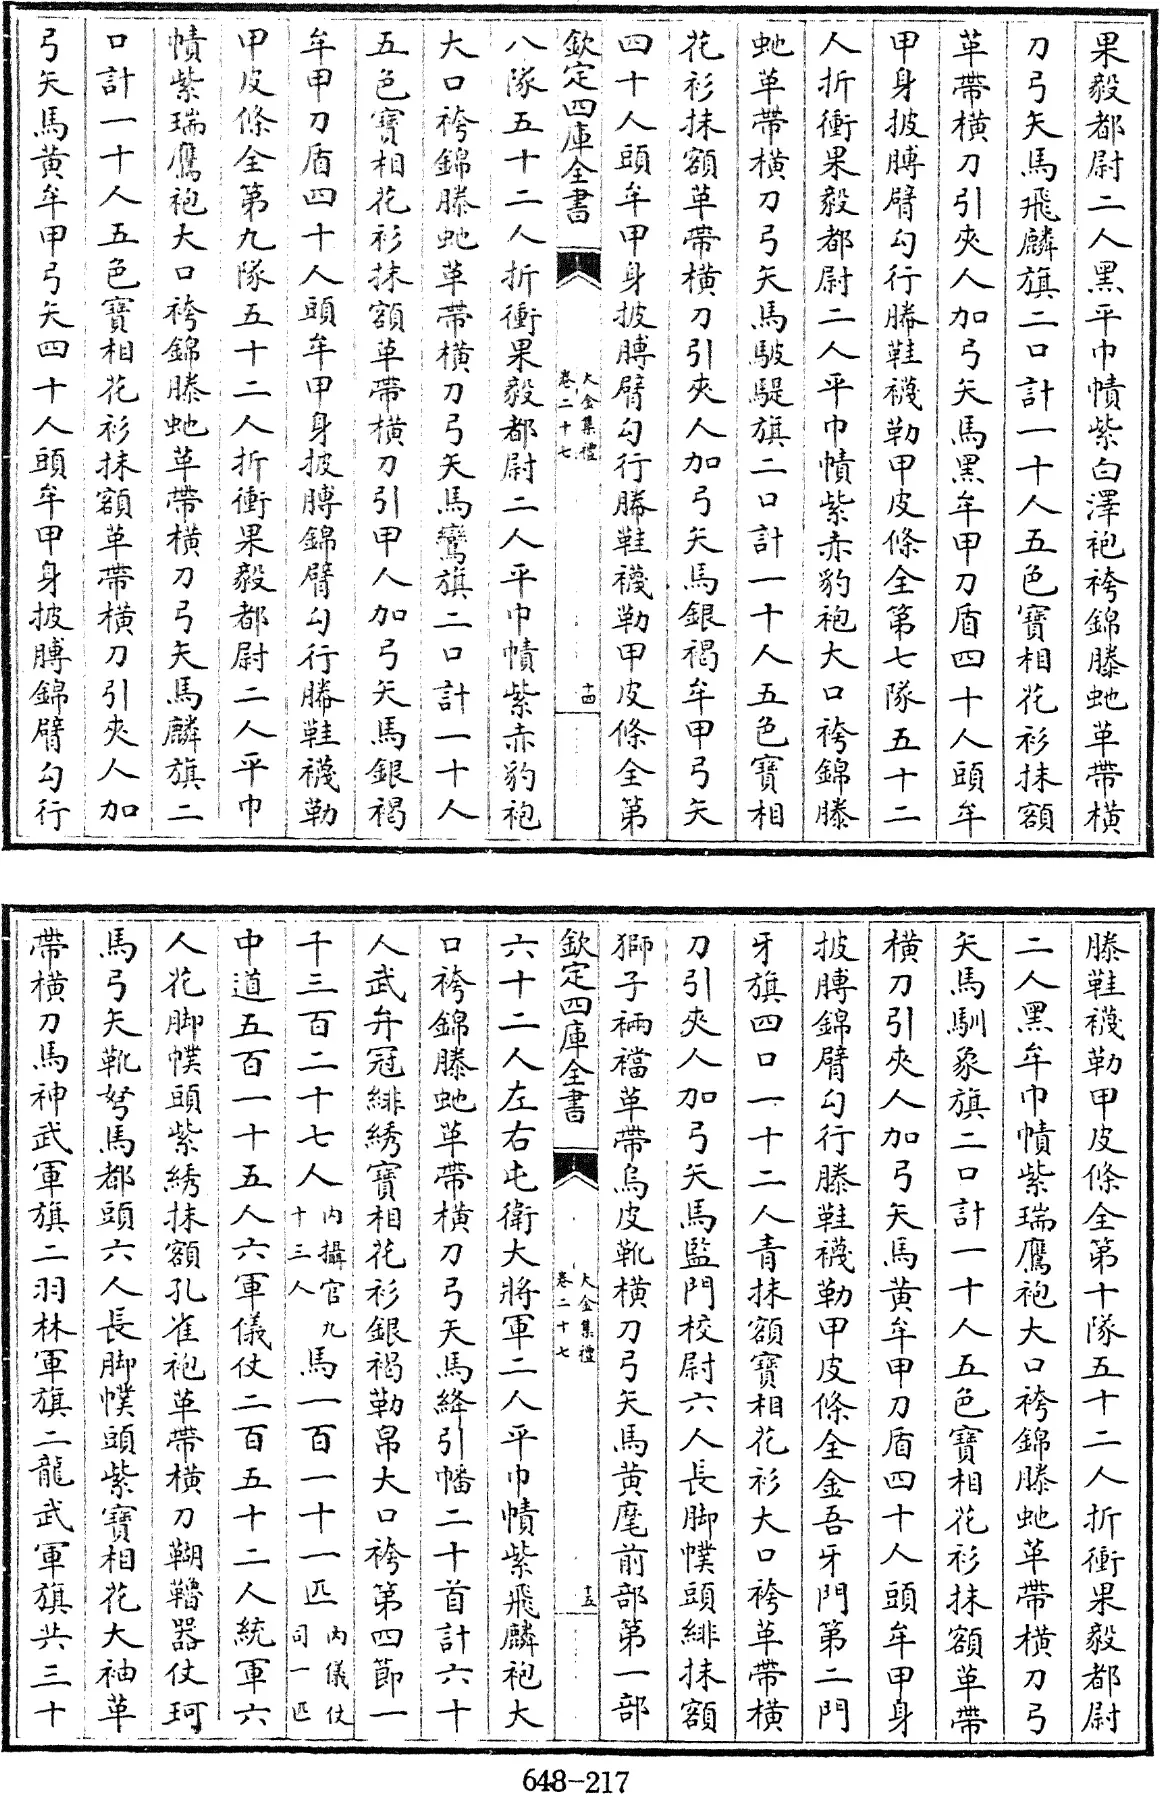 果毅都尉二人黑平巾幘紫白澤袍袴錦縢虵革帶橫
刀弓矢馬飛麟旗二口計一十人五色寶相花衫抹額
革帶橫刀引夾人加弓矢馬黑牟甲刀盾四十人頭牟
甲身披膊臂勾行縢鞋襪勒甲皮絛全第七隊五十二
人折衝果毅都尉二人平巾幘紫赤豹袍大口袴錦縢
虵革帶橫刀弓矢馬駃騠旗二口計一十人五色寶相
花衫抹額革帶橫刀引夾人加弓矢馬銀褐牟甲弓矢
四十人頭牟甲身披膊臂勾行縢鞋襪勒甲皮絛全第
欽定四庫全書 大金集禮 卷二十七 十四
八隊五十二人折衝果毅都尉二人平巾幘紫赤豹袍
大口袴錦縢虵革帶橫刀弓矢馬鸞旗二口計一十人
五色寶相花衫抹額革帶橫刀引甲人加弓矢馬銀褐
牟甲刀盾四十人頭牟甲身披膊錦臂勾行縢鞋襪勒
甲皮絛全第九隊五十二人折衝果毅都尉二人平巾
幘紫瑞鷹袍大口袴錦縢虵革帶橫刀弓矢馬麟旗二
口計一十人五色寶相花衫抹額革帶橫刀引夾人加
弓矢馬黃牟甲弓矢四十人頭牟甲身披膊錦臂勾行
縢鞋襪勒甲皮絛全第十隊五十二人折衝果毅都尉
二人黑牟巾幘紫瑞鷹袍大口袴錦縢虵革帶橫刀弓
矢馬馴象旗二口計一十人五色寶相花衫抹額革帶
橫刀引夾人加弓矢馬黃牟甲刀盾四十人頭牟甲身
披膊錦臂勾行縢鞋襪勒甲皮絛全金吾牙門第二門
牙旗四口一十二人青抹額寶相花衫大口袴革帶橫
刀引夾人加弓矢馬監門校尉六人長脚幞頭緋抹額
獅子裲襠革帶烏皮靴橫刀弓矢馬黃麾前部第一部
欽定四庫全書 大金集禮 卷二十七 十五
六十二人左右屯衛大將軍二人平巾幘紫飛麟袍大
口袴錦縢虵革帶橫刀弓矢馬絳引幡二十首計六十
人武弁冠緋綉寶相花衫銀褐勒帛大口袴第四節一
千三百二十七人內攝官九十三人馬一百一十一匹內儀仗司一匹
中道五百一十五人六軍儀仗二百五十二人統軍六
人花脚幞頭紫綉抹額孔雀袍革帶橫刀鞘轡器仗珂
馬弓矢靴弩馬都頭六人長脚幞頭紫寶相花大袖革
帶橫刀馬神武軍旗二羽林軍旗二龍武軍旗共三十
648-217